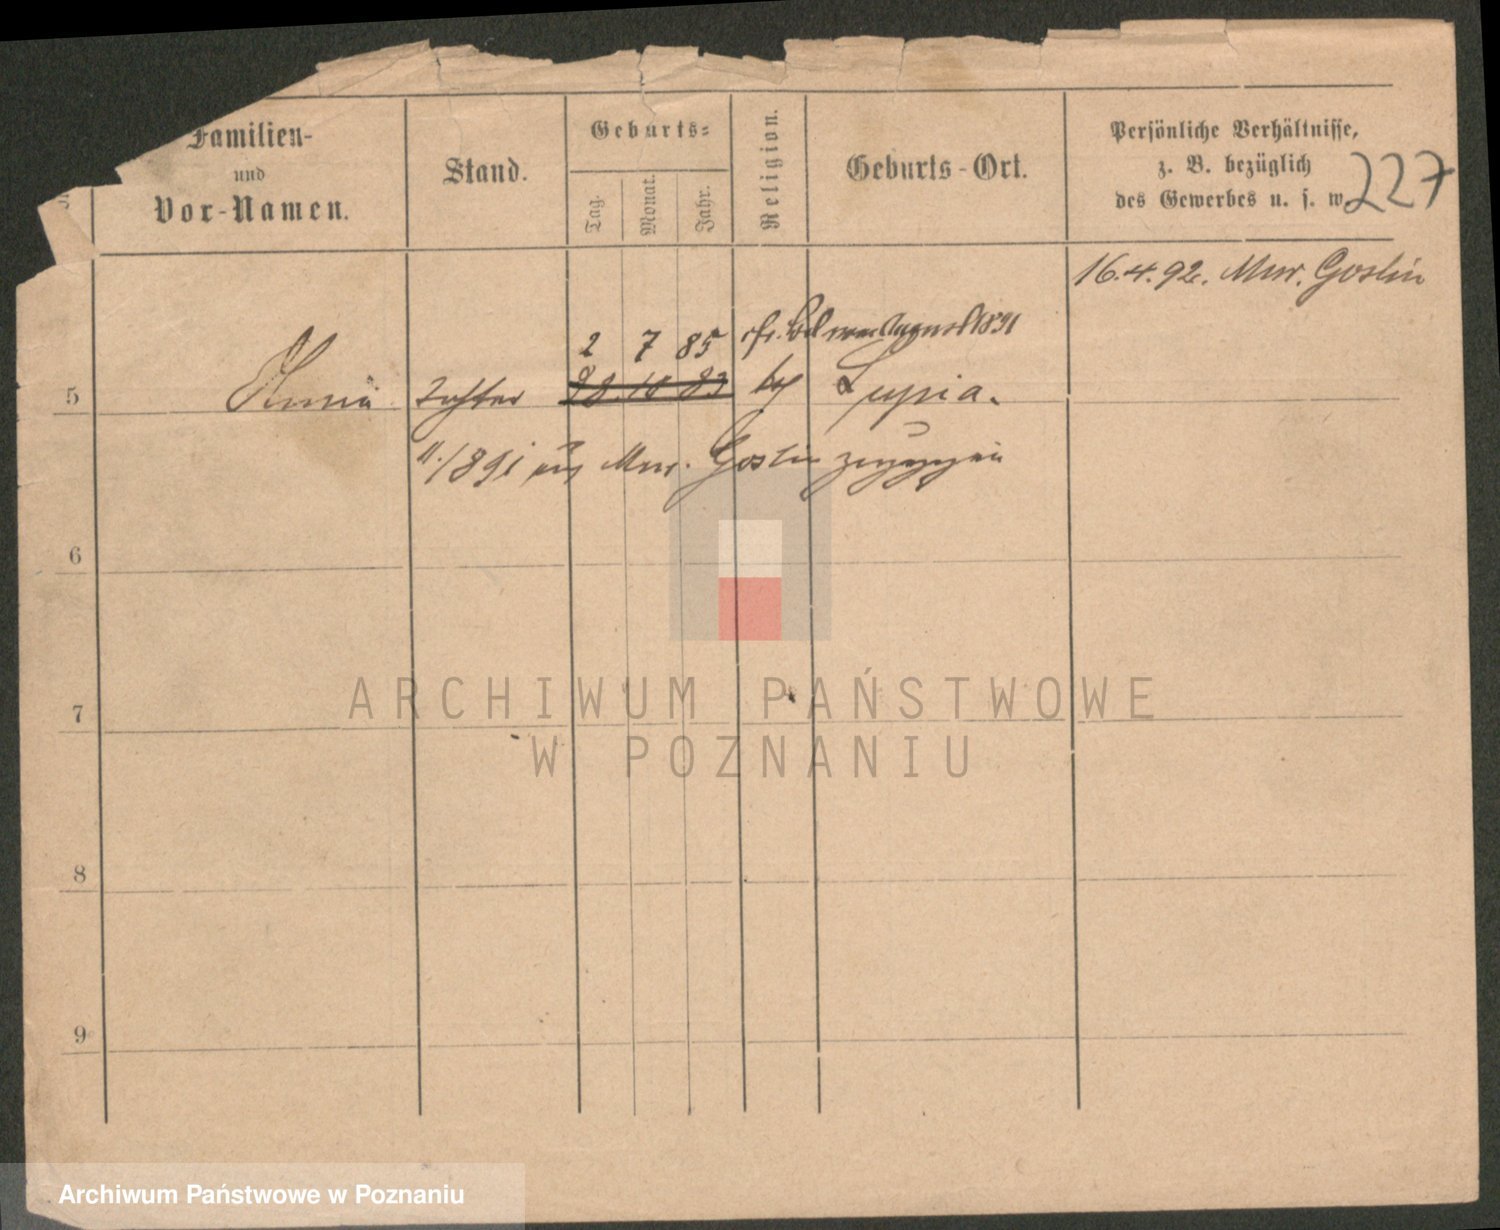 Familien-
und
Vor-Namen.
Stand.
Geburts-
Tag.
Monat.
Jahr.
Religion.
Geburts-Ort.
Persönliche Verhältnisse,
z. B. bezüglich
des Gewerbes u. s. w.
227
16.4.92. Mur. Goslin
2 7 85 August 1891
5 Tochter 10 83 Lupia.
/891 aus Mur. Goslin zugezogen
6
7
8
9
ARCHIWUM PAŃSTWOWE
W POZNANIU
Archiwum Państwowe w Poznaniu